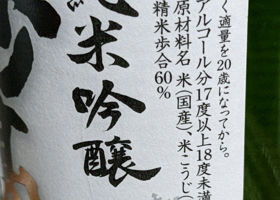 く適量を20歳になってから。
アルコール分17度以上18度未満
原材料名 米(国産)、米こうじ(
精米歩合60%
純米吟醸